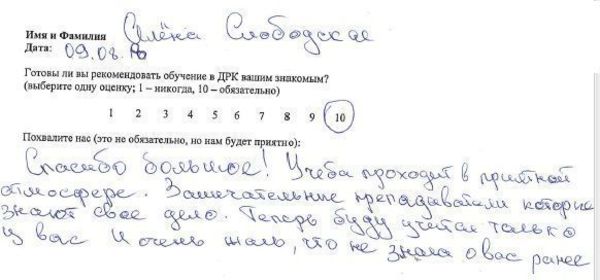 Имя и Фамилия Алёна Слободская
Дата: 09.08.
Готовы ли вы рекомендовать обучение в ДРК вашим знакомым?
(выберите одну оценку; 1 – никогда, 10 – обязательно)
1 2 3 4 5 6 7 8 9 10
Похвалите нас (это не обязательно, но нам будет приятно):
Спасибо большое! Учеба проходит в приятной
атмосфере. Замечательные преподаватели которые
знают свое дело. Теперь буду учится только
у вас и очень жаль, что не знала о вас ранее